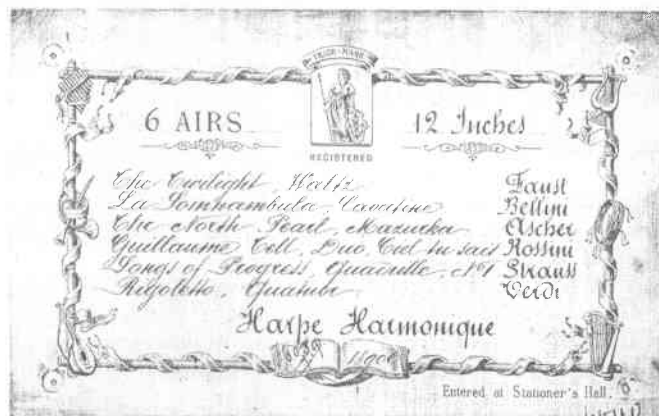 TRADE MARK
6 AIRS
12 Inches
REGISTERED
The Twilight, Waltz Faust
La Somnambula, Cavatine Bellini
The North Pearl, Mazurka Ascher
Guillaume Tell, Duo, Ciel tu sais Rossini
Songs of Progress, Quadrille, No1 Strauss
Rigoletto, Quatuor Verdi
Harpe Harmonique
Entered at Stationer's Hall.